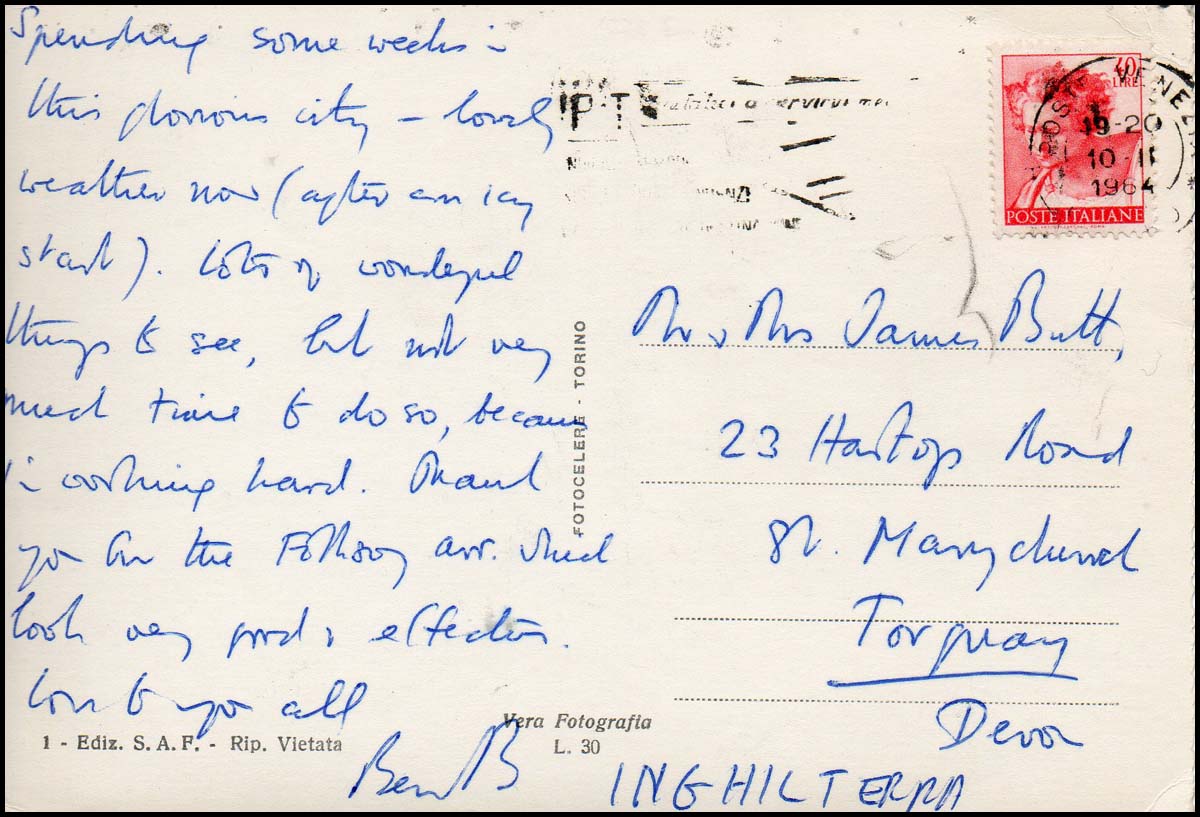 Spending some weeks in
this glorious city – lovely
weather now (after an icy
start). Lots of wonderful
things to see, but not very
much time to do so, because
I'm working hard. Thank
you for the Folksong arr. which
look very good & effective.
Love to you all
Ben B
1 - Ediz. S. A. F. - Rip. Vietata
Vera Fotografia
L. 30
FOTOCELERE - TORINO
P.T
40
LIRE
POSTE ITALIANE
POSTE VENEZIA
19-20
10-II
1964
Mr & Mrs James Butt,
23 Hartop Road
St. Marychurch
Torquay
Devon
INGHILTERRA